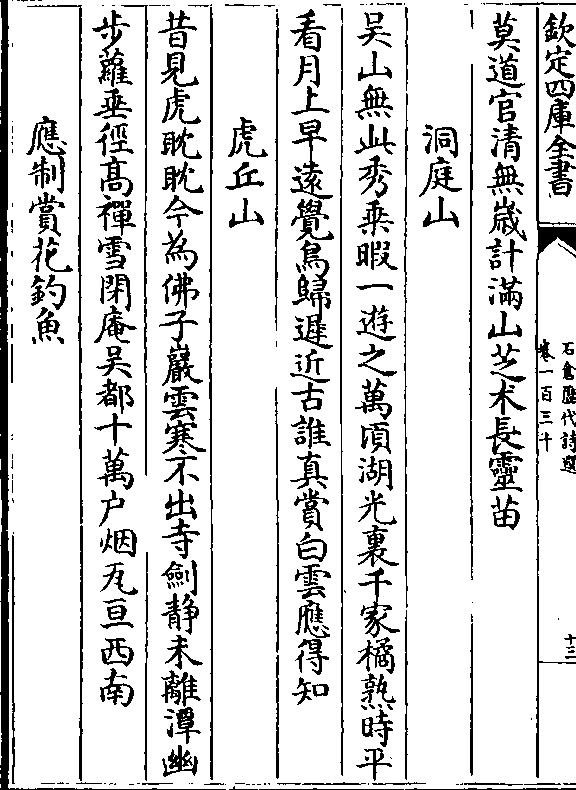 欽定四庫全書
石倉歷代詩選
卷一百三十
十三
莫道官清無歲計滿山芝术長靈苗
洞庭山
吳山無此秀乗暇一遊之萬頃湖光裏千家橘熟時平
看月上早遠覺鳥歸遲近古誰真賞白雲應得知
虎丘山
昔見虎耽耽今為佛子巖雲寒不出寺劒静未離潭幽
步蘿垂徑高禪雪閉庵吳都十萬户烟瓦亘西南
應制賞花釣魚